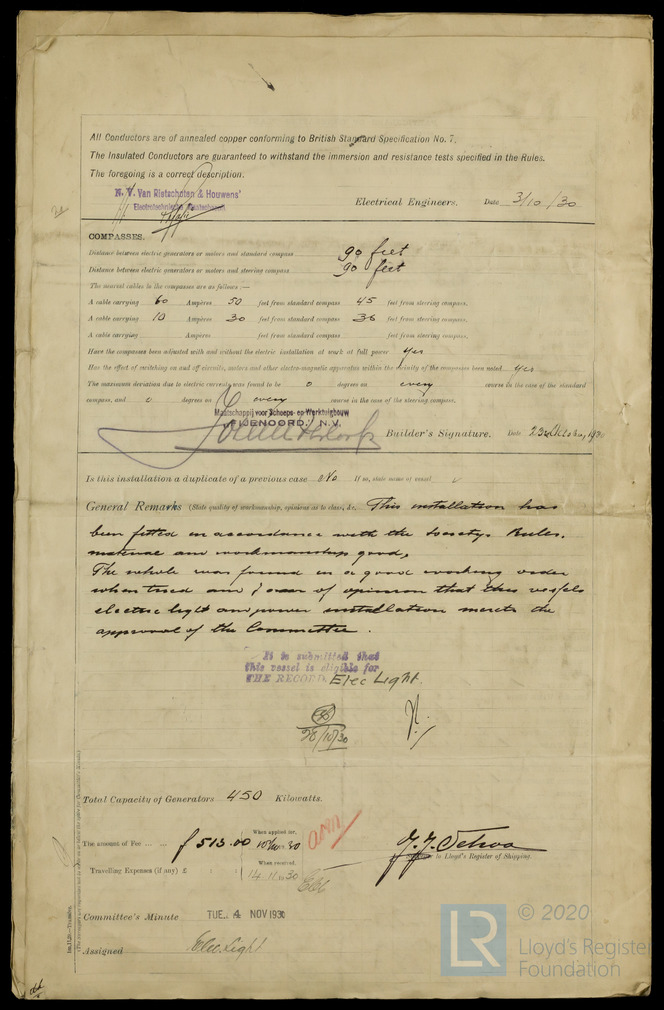 All Conductors are of annealed copper conforming to British Standard Specification No. 7.
The Insulated Conductors are guaranteed to withstand the immersion and resistance tests specified in the Rules.
The foregoing is a correct description.
N. V. Van Rietschoten & Houwens'
Electrical Engineers. Date 3/10/30
COMPASSES.
Distance between electric generators or motors and standard compass 90 feet
Distance between electric generators or motors and steering compass 90 feet
The nearest cables to the compasses are as follows :—
A cable carrying 60 Ampères 50 feet from standard compass 45 feet from steering compass.
A cable carrying 10 Ampères 30 feet from standard compass 36 feet from steering compass.
A cable carrying Ampères feet from standard compass feet from steering compass.
Have the compasses been adjusted with and without the electric installation at work at full power yes
Has the effect of switching on and off circuits, motors and other electro-magnetic apparatus within the vicinity of the compasses been noted yes
The maximum deviation due to electric currents was found to be 0 degrees on every course in the case of the standard
compass, and 0 degrees on every course in the case of the steering compass.
Maatschappij voor Scheeps- en Werktuigbouw
"FIJENOORD" N.V.
Builder's Signature. Date 23d October, 1930
Is this installation a duplicate of a previous case No If so, state name of vessel
General Remarks (State quality of workmanship, opinions as to class, &c. This installation has
been fitted in accordance with the Societys Rules.
material and workmanship good,
The whole was found in a good working order
when tried and I am of opinion that this vessels
electric light and power installation merits the
approval of the Committee.
It is submitted that
this vessel is eligible for
THE RECORD Elec Light.
28/10/30
Total Capacity of Generators 450 Kilowatts.
The amount of Fee ... ... f 513.00 When applied for, 30
Travelling Expenses (if any) £ When received, 14.11.30
to Lloyd's Register of Shipping
Committee's Minute TUE. 4 NOV 1930
Assigned Elec. Light
© 2020
LR
Lloyd's Register
Foundation